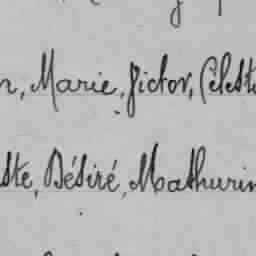 n, Marie, Victor, Célest
ste, Désiré, Mathurin